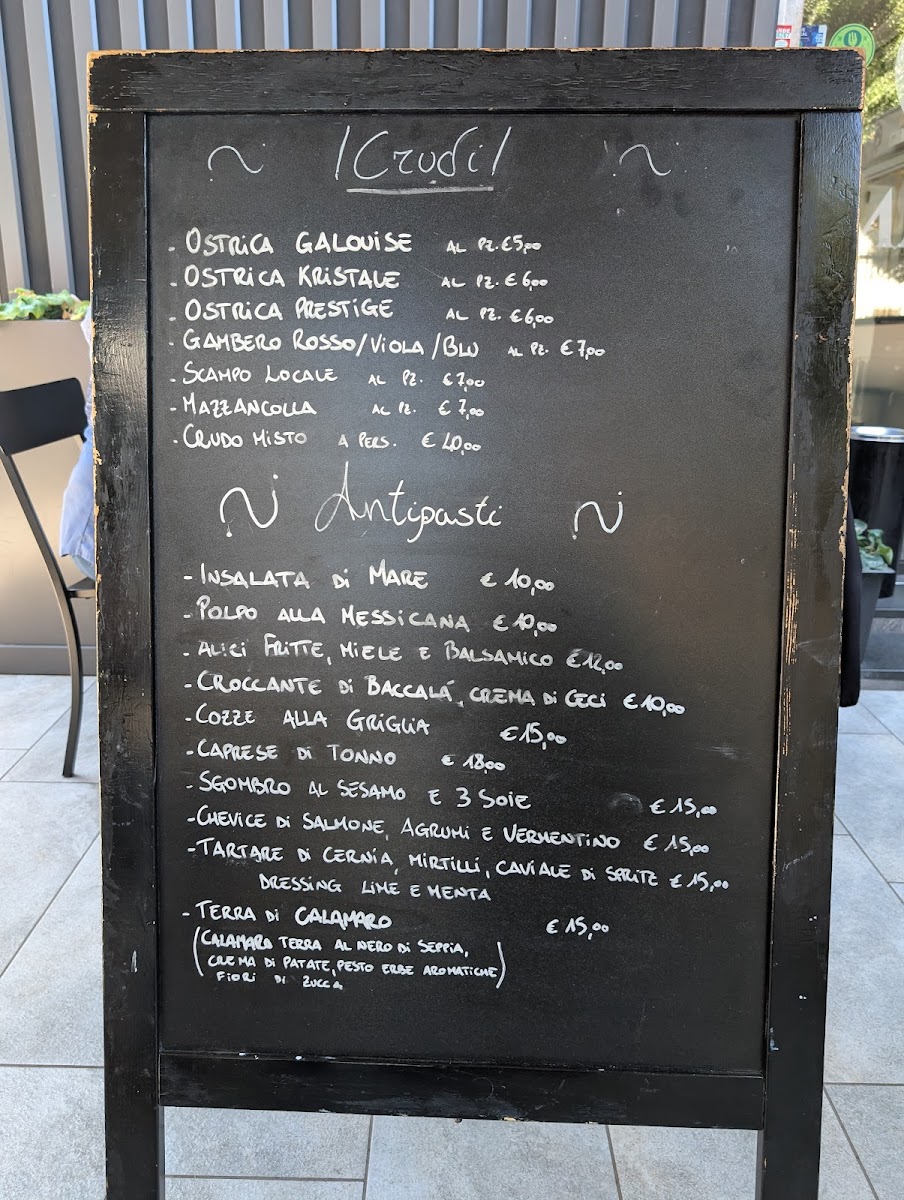 ~ I Crudi ~
- OSTRICA GALOUISE AL PZ. €5,00
- OSTRICA KRISTALE AL PZ. €6,00
- OSTRICA PRESTIGE AL PZ. €6,00
- GAMBERO ROSSO/VIOLA/BLU AL PZ. €7,00
- SCAMPO LOCALE AL PZ. €7,00
- MAZZANCOLLA AL PZ. €7,00
- CRUDO MISTO A PERS. €
~ Antipasti ~
- INSALATA di MARE € 10,00
- POLPO ALLA MESSICANA € 10,00
- ALICI FRITTE, MIELE E BALSAMICO €12,00
- CROCCANTE di BACCALÁ, CREMA Di CECI €10,00
- COZZE ALLA GRIGLIA €15,00
- CAPRESE Di TONNO € 18,00
- SGOMBRO AL SESAMO E 3 SOIE € 15,00
- CHEVICE Di SALMONE, AGRUMI E VERMENTINO € 15,00
- TARTARE Di CERNIA, MIRTILLI, CAVIALE Di SPRITZ € 15,00
DRESSING LIME E MENTA
- TERRA Di CALAMARO € 15,00
(CALAMARO TERRA AL NERO Di SEPPIA,
CREMA Di PATATE, PESTO ERBE AROMATICHE)
FIORI Di ZUCCA